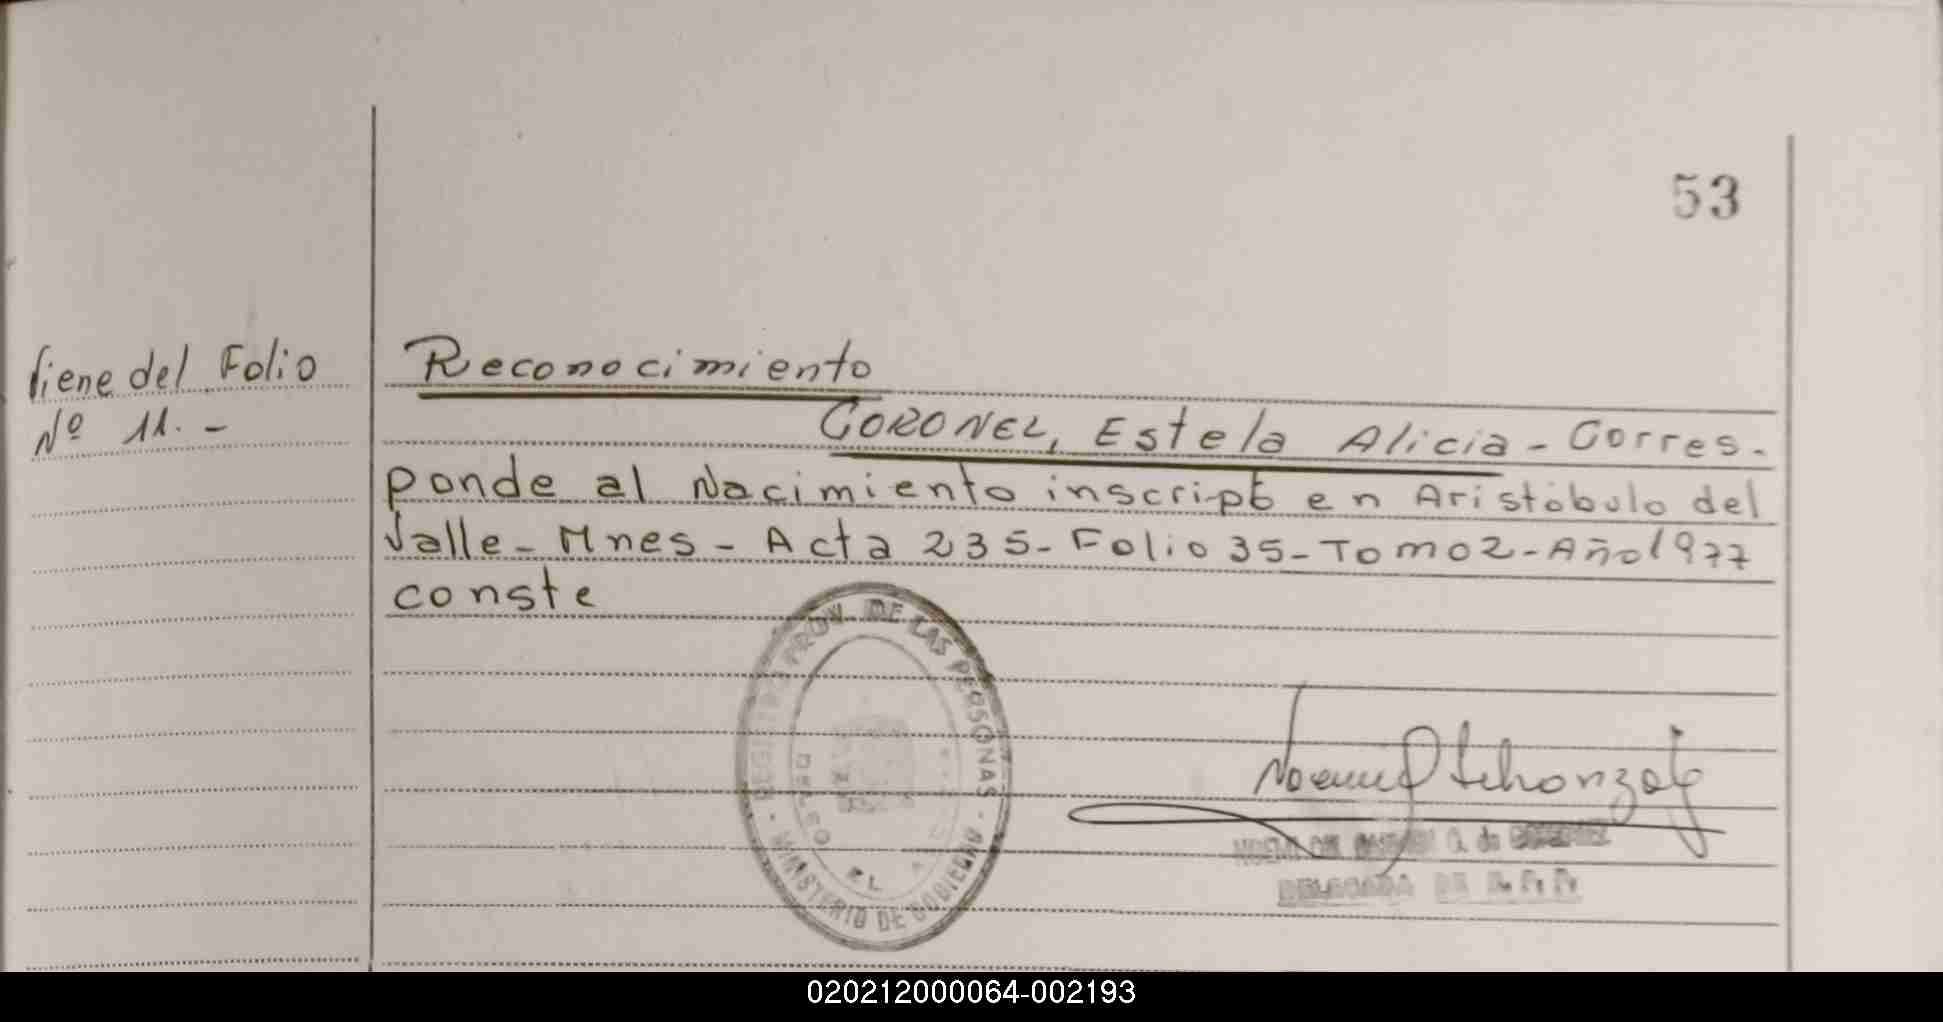 53
Viene del Folio
Nº 11. -
Reconocimiento
CORONEL, Estela Alicia - Corres-
ponde al Nacimiento inscripto en Aristóbulo del
Valle - Mnes - Acta 235 - Folio 35 - Tomo 2 - Año 1977
conste
PROV. DE LAS PERSONAS - MINISTERIO DE GOBIERNO -
DELEG
DELEGADA DE R. P. P.
020212000064-002193